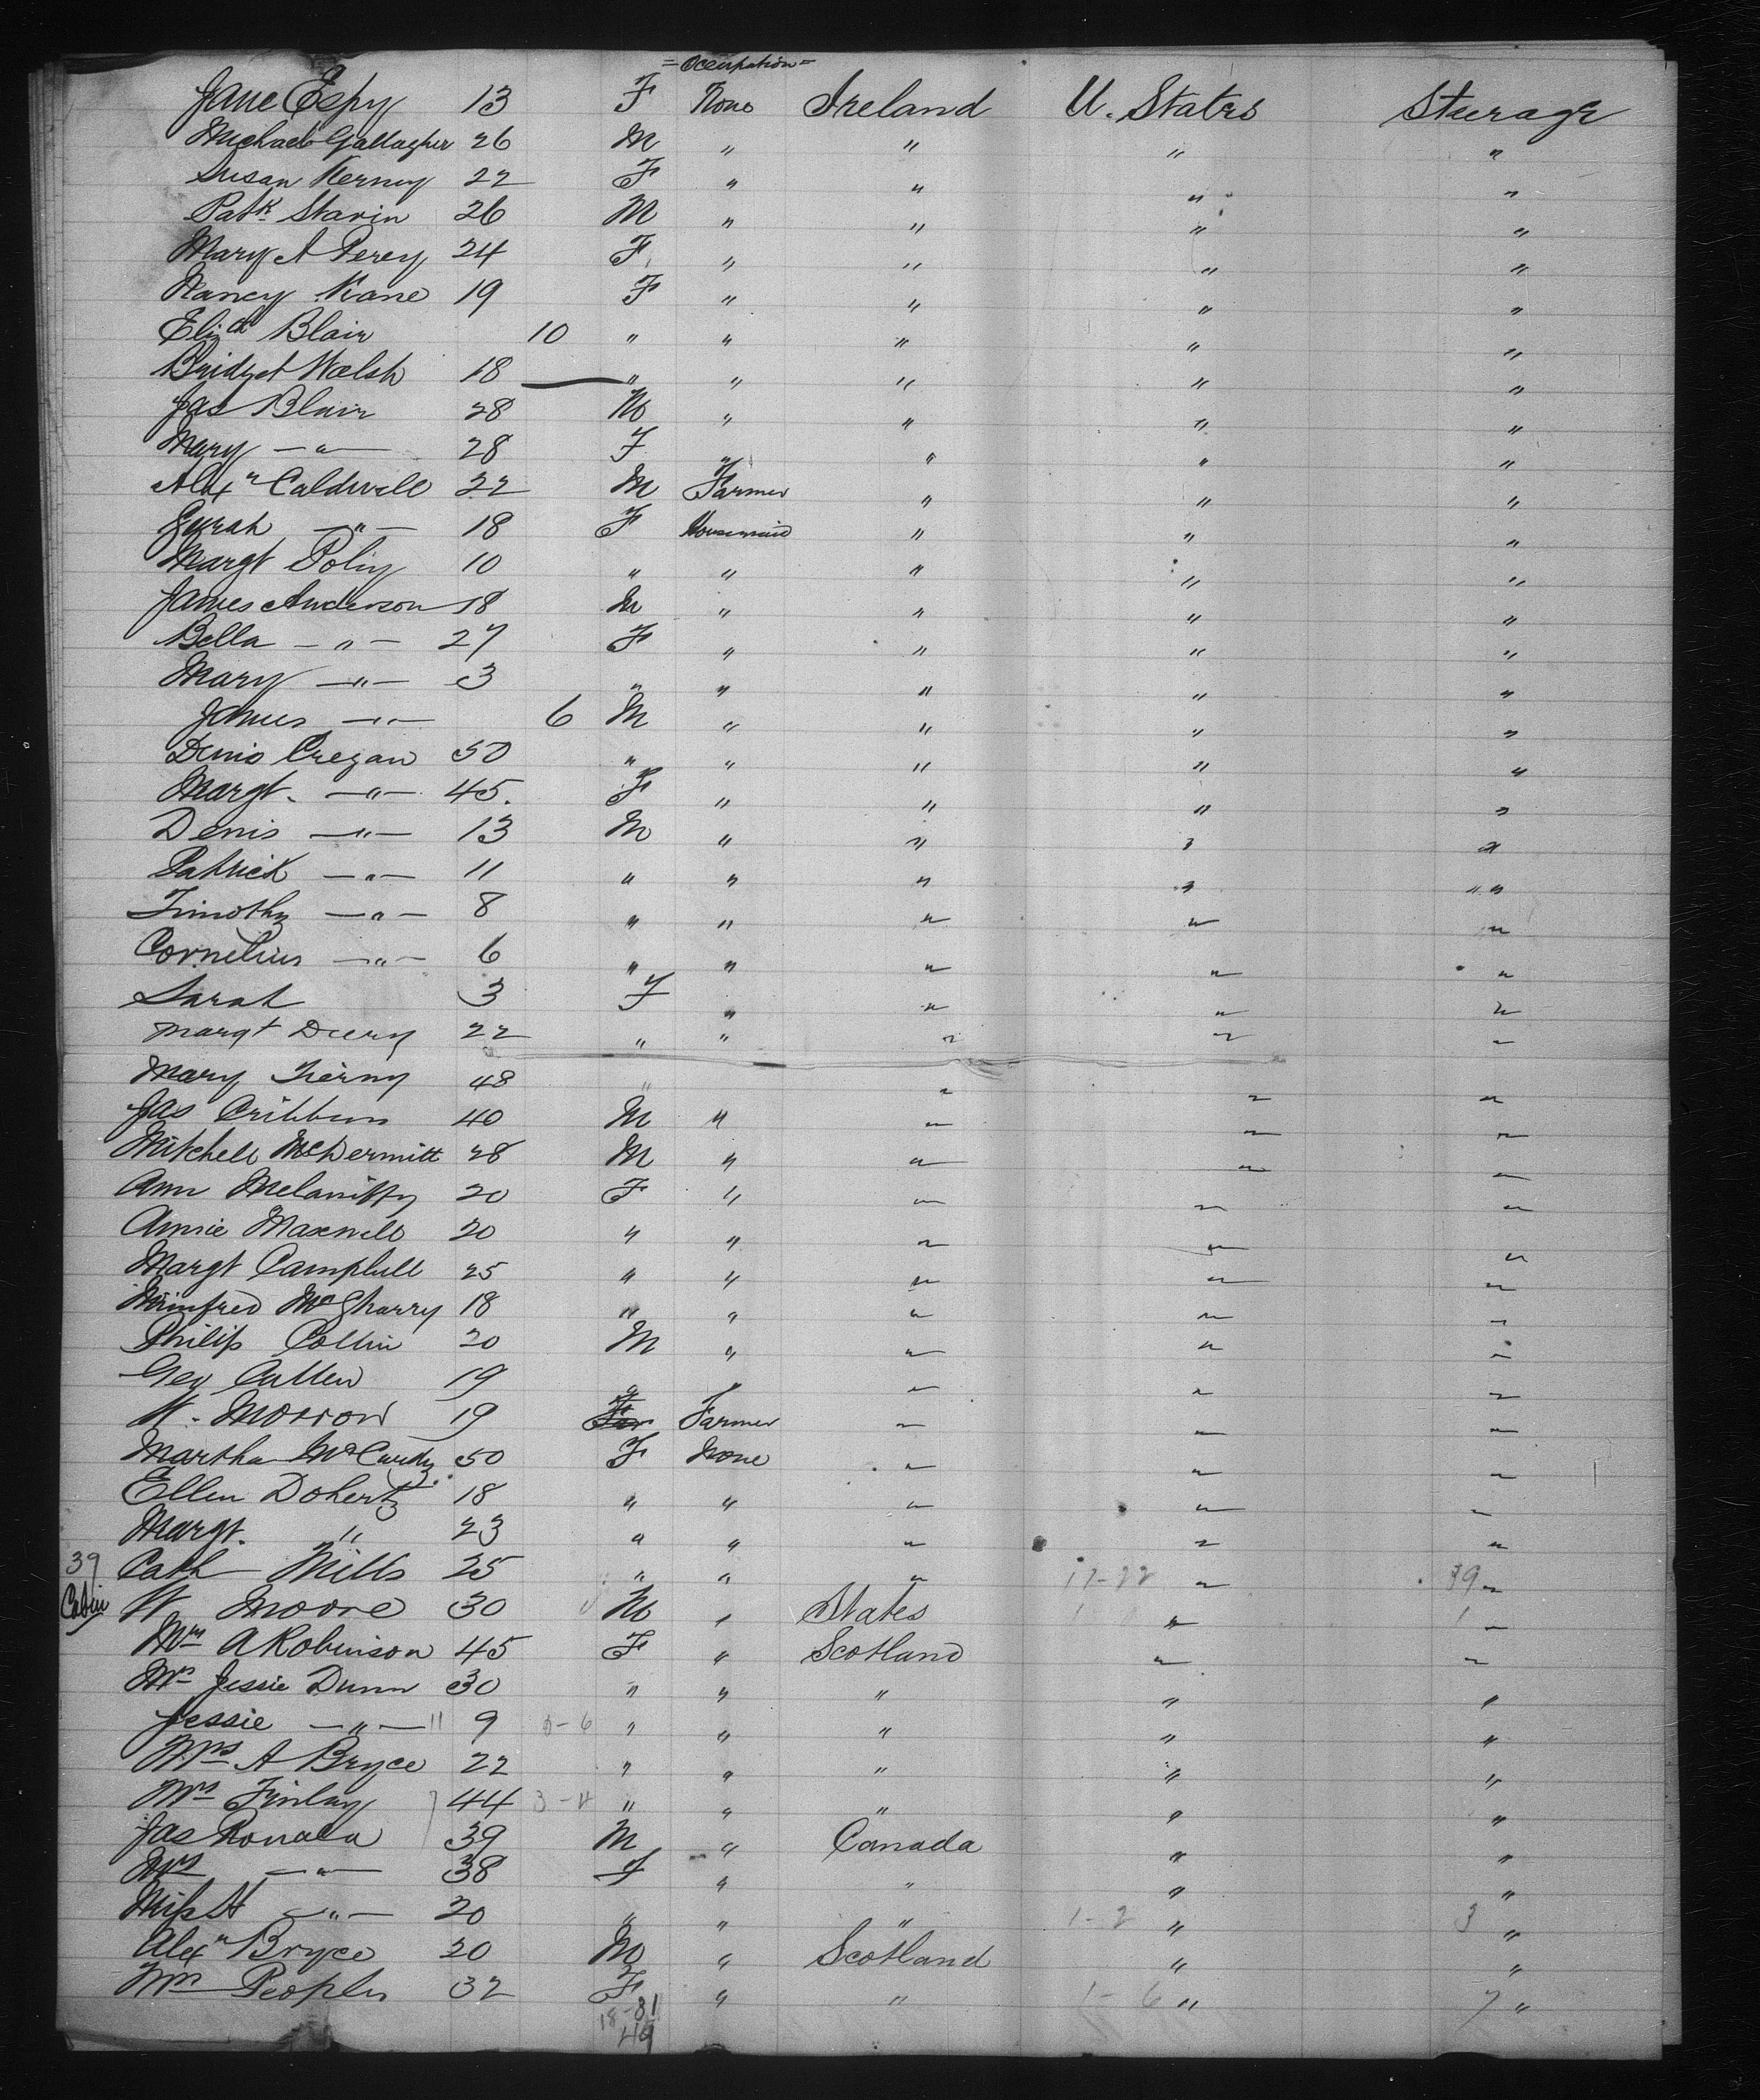 = Occupation =
Jane Espy 13 F None Ireland U. States Steerage
Michael Gallagher 26 M " " " "
Susan Kerney 22 F " " " "
Patk Slavin 26 M " " " "
Mary A Perey 24 F " " " "
Nancy Kane 19 F " " " "
Elizth Blair 10 " " " " "
Bridget Walsh 18 " " " " "
Jas Blair 28 M " " " "
Mary — " — 28 F " " " "
Alexr Caldwell 22 M Farmer " " "
Sarah — " — 18 F Housemaid " " "
Margt 10 " " " " "
James Anderson 18 M " " " "
Bella — " — 27 F " " " "
Mary — " — 3 " " " " "
James — " — 6 M " " " "
Denis Cregan 50 " " " " "
Margt. — " — 45. F " " " "
Denis — " — 13 M " " " "
Patrick — " — 11 " " " " "
Timothy — " — 8 " " " " "
Cornelius — " — 6 " " " " "
Sarah 3 F " " " "
Margt Deery 22 " " " " "
Mary Tierny 48 " " " "
Jas Cribben 40 M " " " "
Mitchell McDermitt 28 M " " " "
Ann 20 F " " " "
Annie Maxwell 20 " " " " "
Margt Campbell 25 " " " " "
Winifred McGharry 18 " " " " "
Philip Collin 20 M " " " "
Geo Cullen 19 " " " "
W. Morrow 19 Farmer " " "
Martha McCurdy 50 F None " " "
Ellen Doherty 18 " " " " "
Margt. " 23 " " " " "
39 Cath Mills 25 " " " 17-22 " 39 "
Cabin W Moore 30 M " States " 1 "
Mrs A Robinson 45 F " Scotland " "
Mrs Jessie Dunn 30 " " " " "
Jessie — " — 11 9 0-6 " " " " "
Mrs A Bryce 22 " " " " "
Mrs Finlay 7 44 3-4 " " " " "
Jas Ronald 39 M " Canada " "
Mrs — " — 38 F " " " "
Miss H — " — 20 " " " 1-2 " 3 "
Alexr Bryce 20 M " Scotland " "
Mrs Peoples 32 F " " 1-6 " 7 "
18-31
49